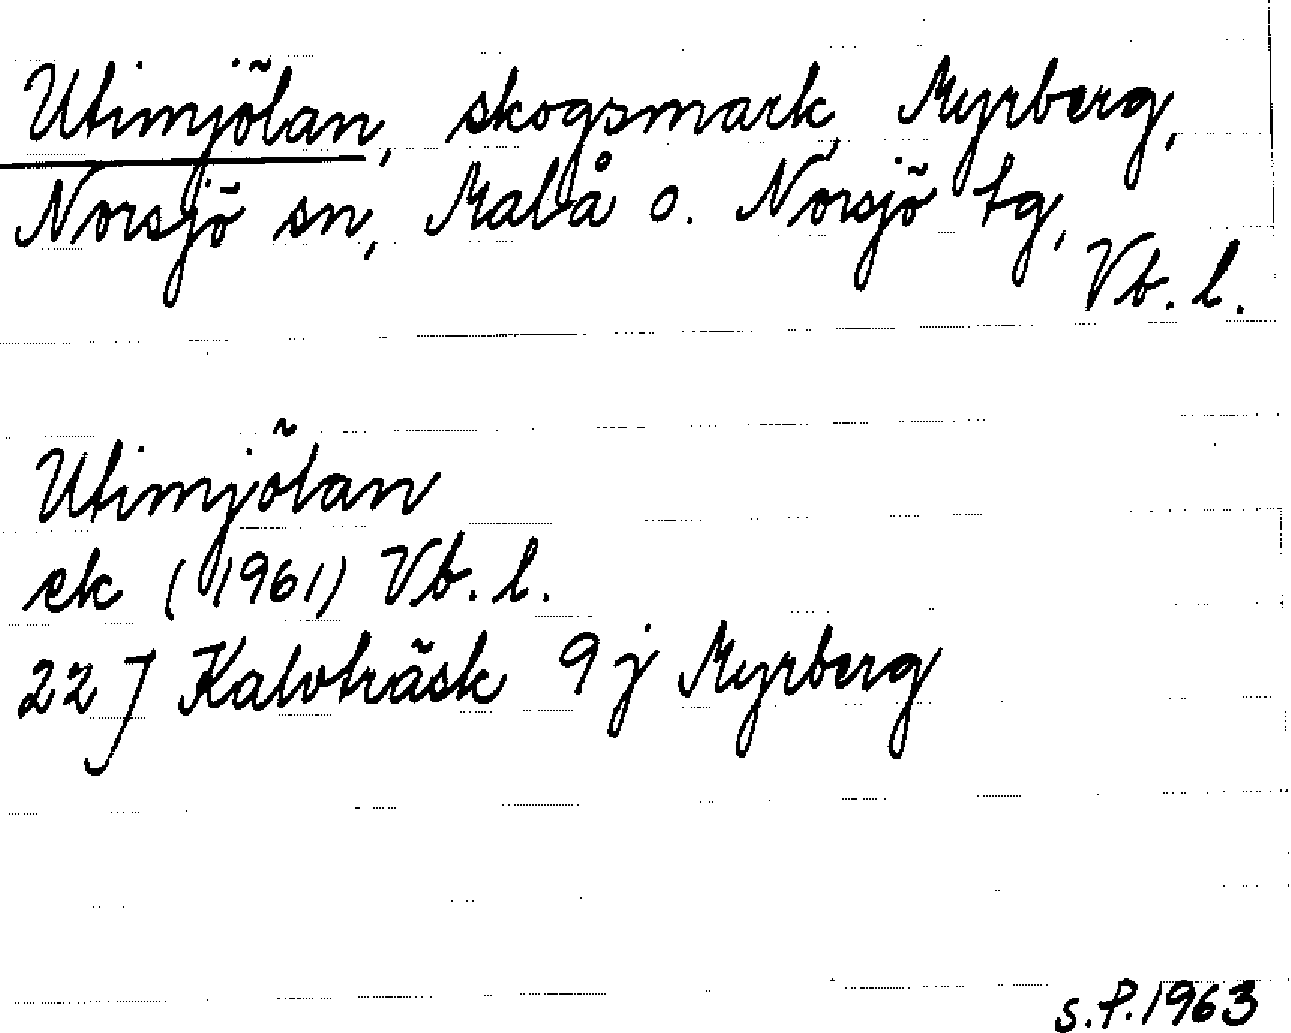 Utimjölan, skogsmark, Myrberg,
Norsjö sn, Malå o. Norsjö tg,
Vb. l.
Utimjölan
ek (1961) Vb. l.
22 J Kalvträsk 9 j Myrberg
S.P. 1963